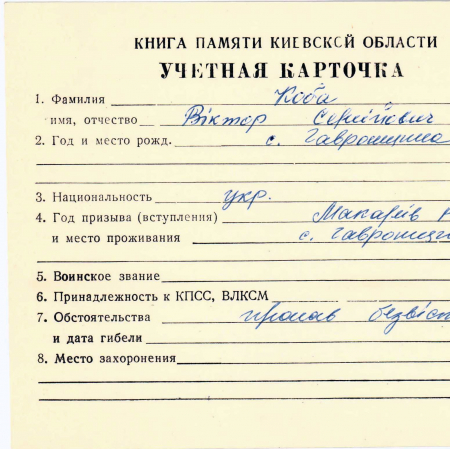 КНИГА ПАМЯТИ КИЕВСКОЙ ОБЛАСТИ
УЧЕТНАЯ КАРТОЧКА
1. Фамилия Коба
имя, отчество Віктор Сергійович
2. Год и место рожд. с. Гавронщина
3. Национальность укр.
4. Год призыва (вступления) Макарів
и место проживания с. Гавронщи
5. Воинское звание
6. Принадлежность к КПСС, ВЛКСМ
7. Обстоятельства пропав безвіст
и дата гибели
8. Место захоронения